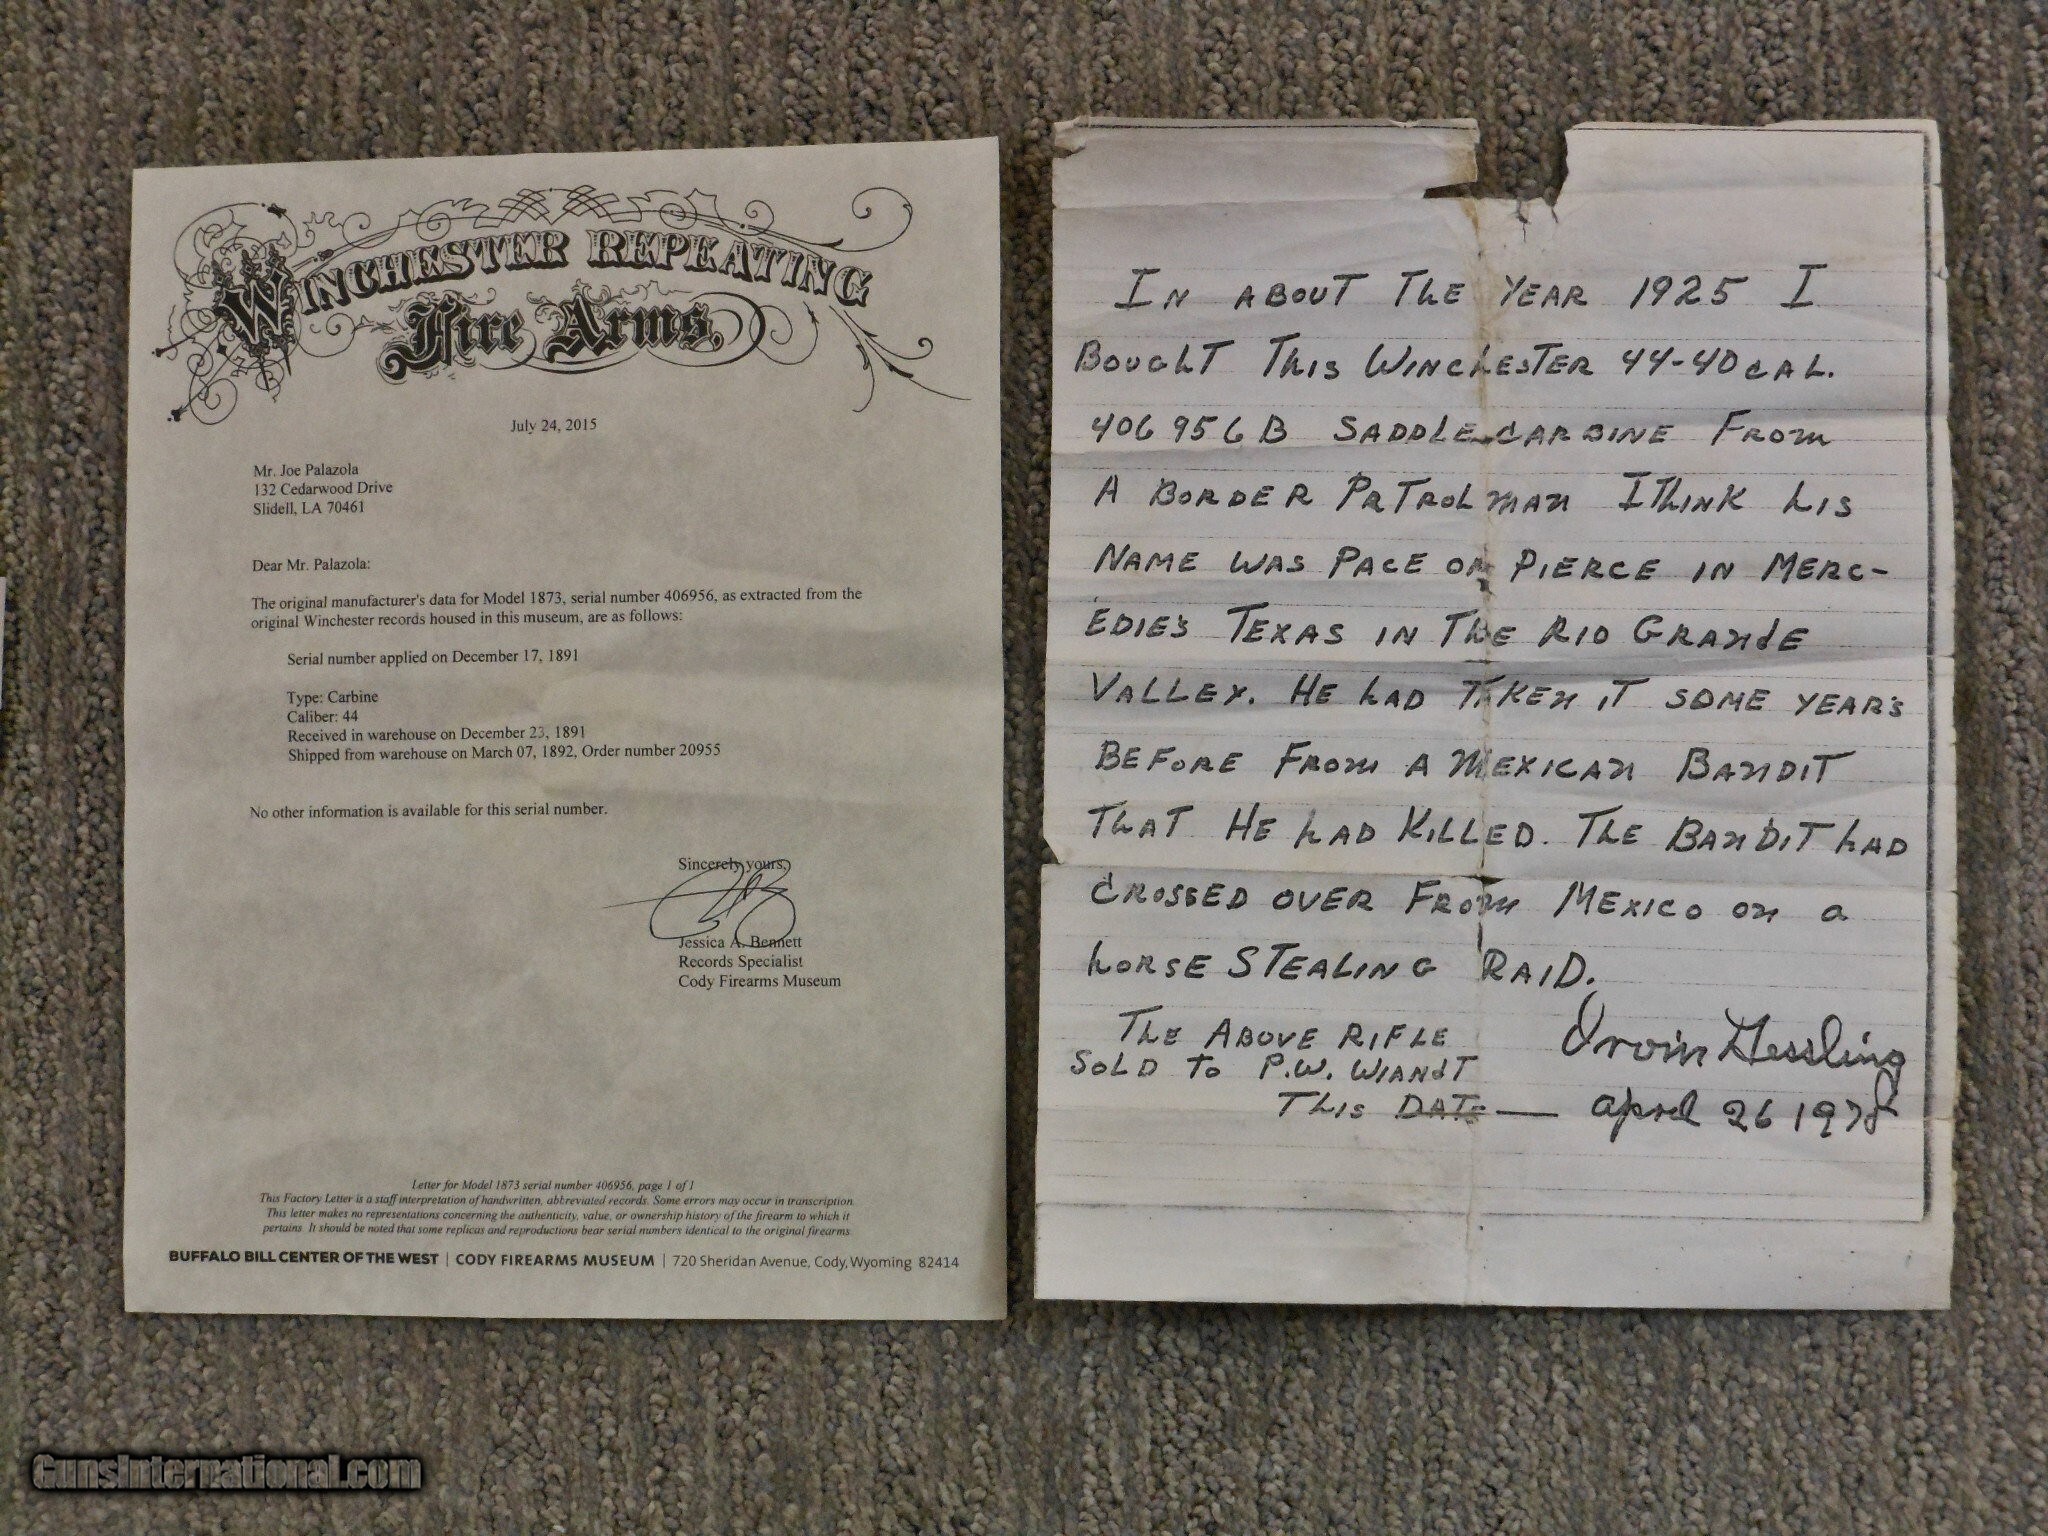 WINCHESTER REPEATING
Fire Arms,
July 24, 2015
Mr. Joe Palazola
132 Cedarwood Drive
Slidell, LA 70461
Dear Mr. Palazola:
The original manufacturer's data for Model 1873, serial number 406956, as extracted from the
original Winchester records housed in this museum, are as follows:
Serial number applied on December 17, 1891
Type: Carbine
Caliber: 44
Received in warehouse on December 23, 1891
Shipped from warehouse on March 07, 1892, Order number 20955
No other information is available for this serial number.
Sincerely yours,
Jessica A. Bennett
Records Specialist
Cody Firearms Museum
Letter for Model 1873 serial number 406956, page 1 of 1
This Factory Letter is a staff interpretation of handwritten, abbreviated records. Some errors may occur in transcription.
This letter makes no representations concerning the authenticity, value, or ownership history of the firearm to which it
pertains. It should be noted that some replicas and reproductions bear serial numbers identical to the original firearms.
BUFFALO BILL CENTER OF THE WEST | CODY FIREARMS MUSEUM | 720 Sheridan Avenue, Cody, Wyoming 82414
IN ABOUT THE YEAR 1925 I
BOUGHT THIS WINCHESTER 44-40 CAL.
406956B SADDLE CARBINE FROM
A BORDER PATROLMAN I THINK HIS
NAME WAS PACE OR PIERCE IN MERC-
EDIE'S TEXAS IN THE RIO GRANDE
VALLEY. HE HAD TAKEN IT SOME YEAR'S
BEFORE FROM A MEXICAN BANDIT
THAT HE HAD KILLED. THE BANDIT HAD
CROSSED OVER FROM MEXICO ON A
HORSE STEALING RAID.
THE ABOVE RIFLE
SOLD TO P.W. WIANDT
THIS DATE — April 26 1978
Irvin Hessling
GunsInternational.com